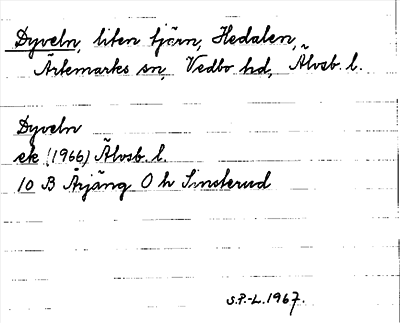 Dyveln, liten tjärn, Hedalen,
Ärtemarks sn, Vedbo hd, Älvsb. l.
Dyveln
ek (1966) Älvsb. l.
10 B Årjäng 0 h Sinsterud
S.P.-L. 1967.